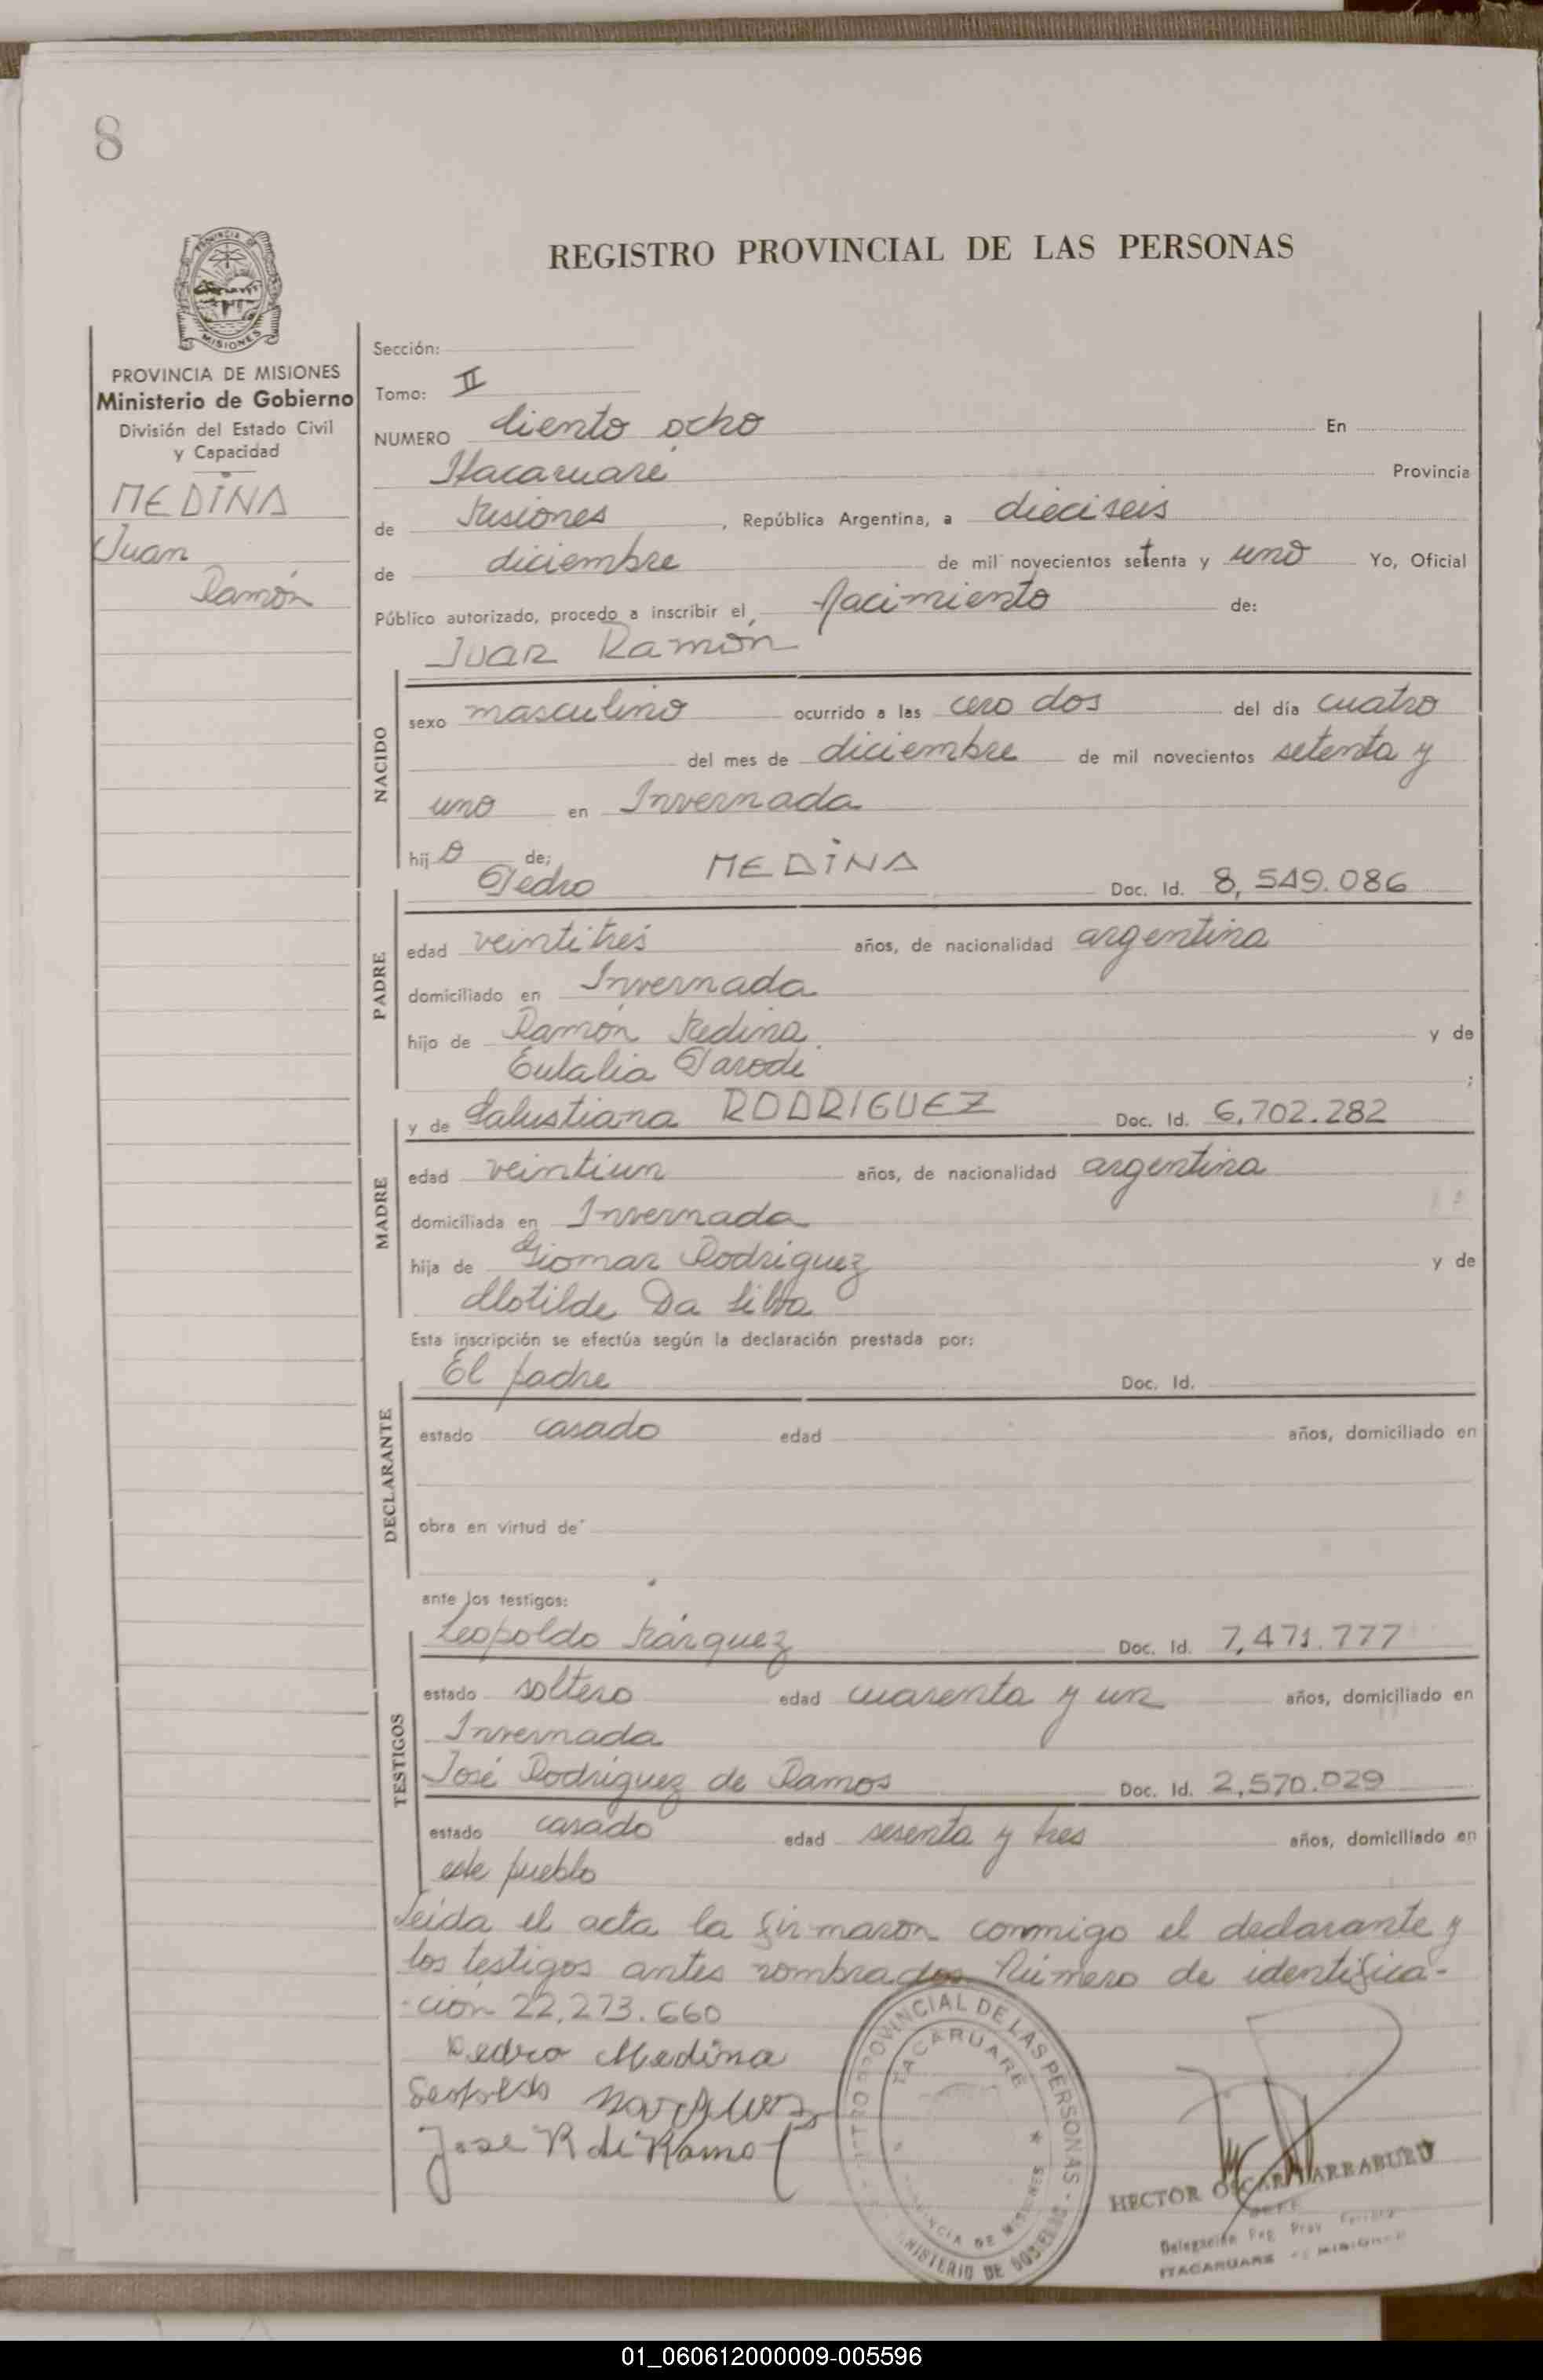 8
PROVINCIA DE
MISIONES
REGISTRO PROVINCIAL DE LAS PERSONAS
PROVINCIA DE MISIONES
Ministerio de Gobierno
División del Estado Civil
y Capacidad
MEDINA
Juan
Ramón
Sección:
Tomo: II
NUMERO Ciento ocho En
Itacaruaré Provincia
de Misiones, República Argentina, a dieciseis
de diciembre de mil novecientos setenta y uno Yo, Oficial
Público autorizado, procedo a inscribir el Nacimiento de:
Juan Ramón
NACIDO
sexo masculino ocurrido a las cero dos del día cuatro
del mes de diciembre de mil novecientos setenta y
uno en Invernada
hijo de:
Pedro MEDINA Doc. Id. 8,549.086
PADRE
edad veintitrés años, de nacionalidad argentina
domiciliado en Invernada
hijo de Ramón Medina y de
Eulalia Parodi ;
y de Salustiana RODRIGUEZ Doc. Id. 6,702.282
MADRE
edad veintiun años, de nacionalidad argentina
domiciliada en Invernada
hija de Giomar Rodriguez y de
Clotilde Da Silva
Esta inscripción se efectúa según la declaración prestada por:
El padre Doc. Id.
DECLARANTE
estado casado edad años, domiciliado en
obra en virtud de
ante los testigos:
Leopoldo Márquez Doc. Id. 7,471.777
TESTIGOS
estado soltero edad cuarenta y un años, domiciliado en
Invernada
José Rodriguez de Ramos Doc. Id. 2,570.029
estado casado edad sesenta y tres años, domiciliado en
este pueblo
Leida el acta la firmaron conmigo el declarante y
los testigos antes nombrados. Número de identifica-
-ción 22,273.660
Pedro Medina
Leopoldo Marquez
Jose R de Ramos
PROVINCIAL DE LAS PERSONAS
ITACARUARE
PROVINCIA DE MISIONES
MINISTERIO DE GOBIERNO
HECTOR OSCAR
JEFE
Delegación Reg. Prov.
ITACARUARE MISIONES
01_060612000009-005596